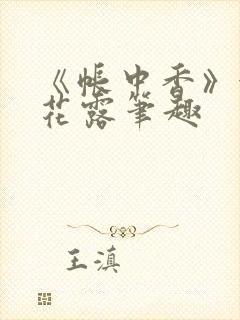 《帐中香》
花露笔趣
王滇